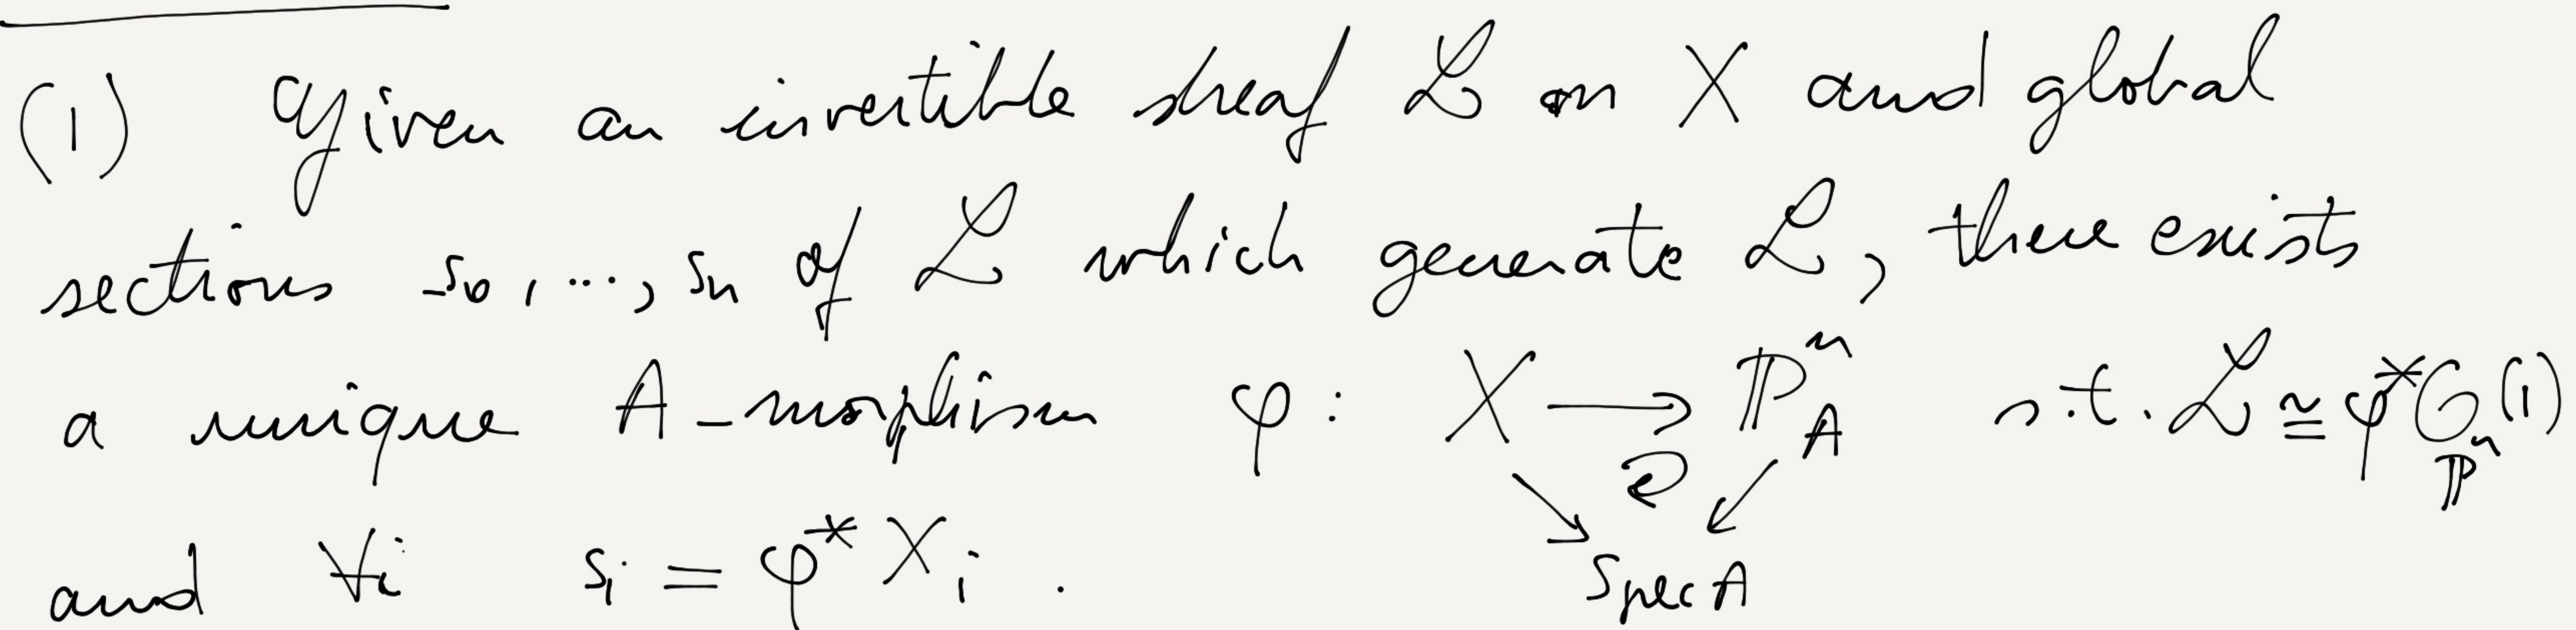 (1) Given an invertible sheaf ℒ on X and global
sections s₀, ..., sₙ of ℒ which generate ℒ, there exists
a unique A-morphism φ: X ⟶ ℙⁿ_A s.t. ℒ ≅ φ*𝒪_ℙⁿ(1)
Spec A
and ∀i sᵢ = φ* Xᵢ .